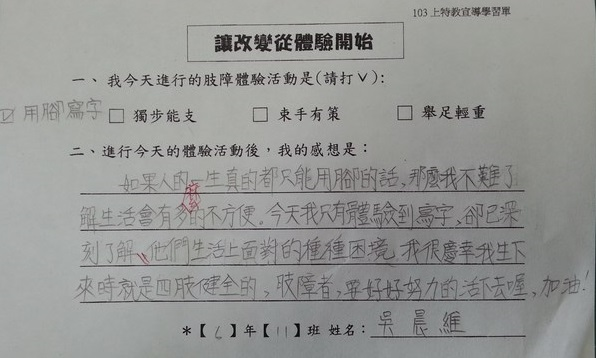 103上特教宣導學習單
讓改變從體驗開始
一、我今天進行的肢障體驗活動是(請打V):
☑用腳寫字 □獨步能支 □束手有策 □舉足輕重
二、進行今天的體驗活動後，我的感想是:
如果人的一生真的都只能用腳的話，那麼我不難了
解生活會有多麼的不方便。今天我只有體驗到寫字，卻已深
刻了解，他們生活上面對的種種困境。我很慶幸我生下
來時就是四肢健全的，肢障者，要好好努力的活下去喔，加油!
*【6】年【11】班 姓名:吳晨維